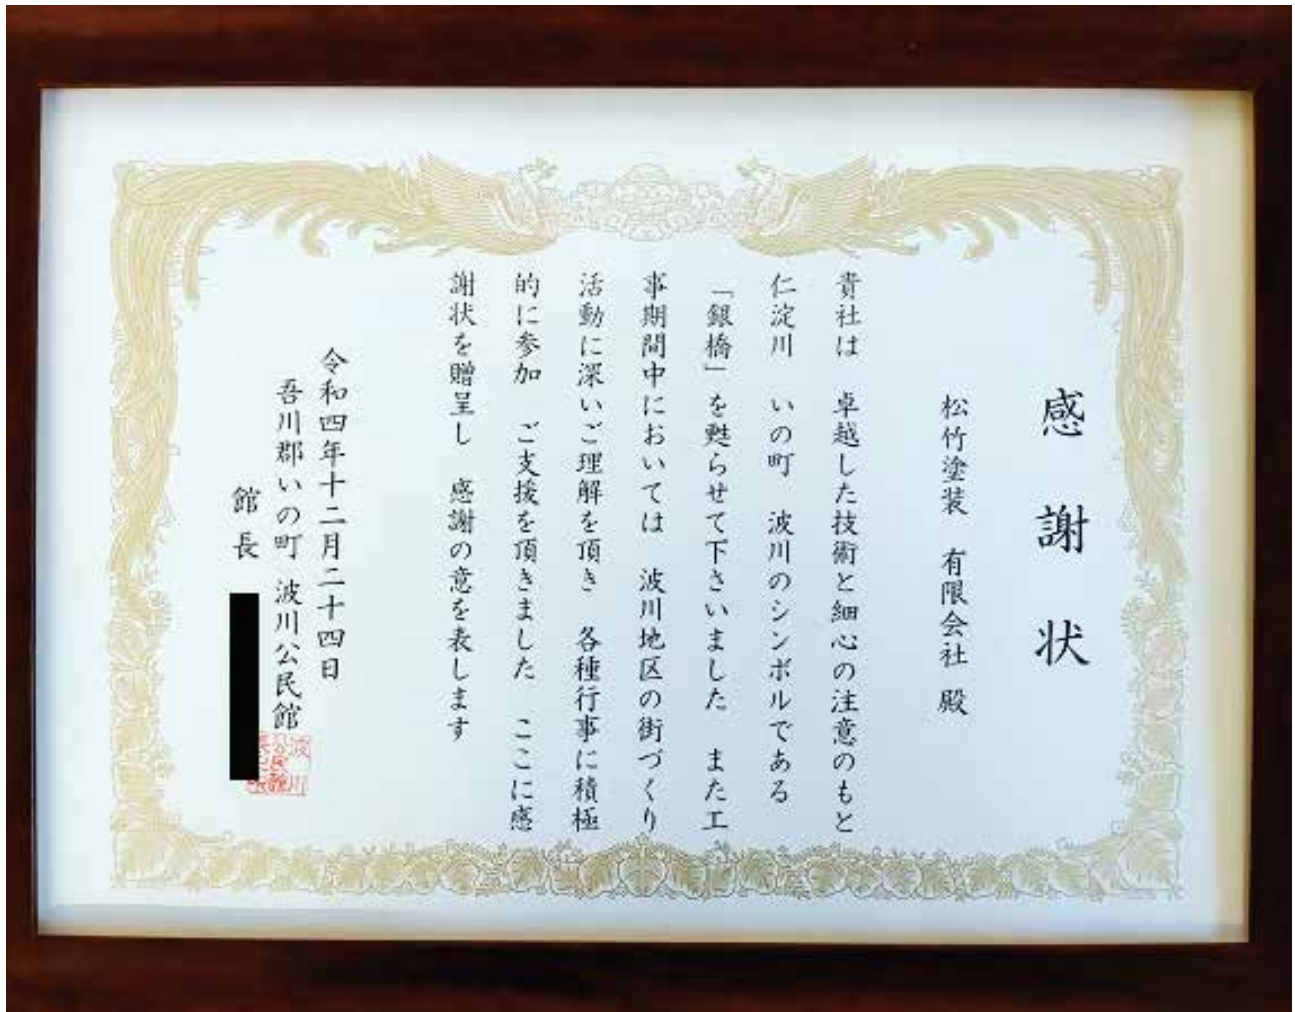 感謝状
松竹塗装 有限会社 殿
貴社は 卓越した技術と細心の注意のもと
仁淀川 いの町 波川のシンボルである
「銀橋」を甦らせて下さいました また工
事期間中においては 波川地区の街づくり
活動に深いご理解を頂き 各種行事に積極
的に参加 ご支援を頂きました ここに感
謝状を贈呈し 感謝の意を表します
令和四年十二月二十四日
吾川郡いの町 波川公民館
館長